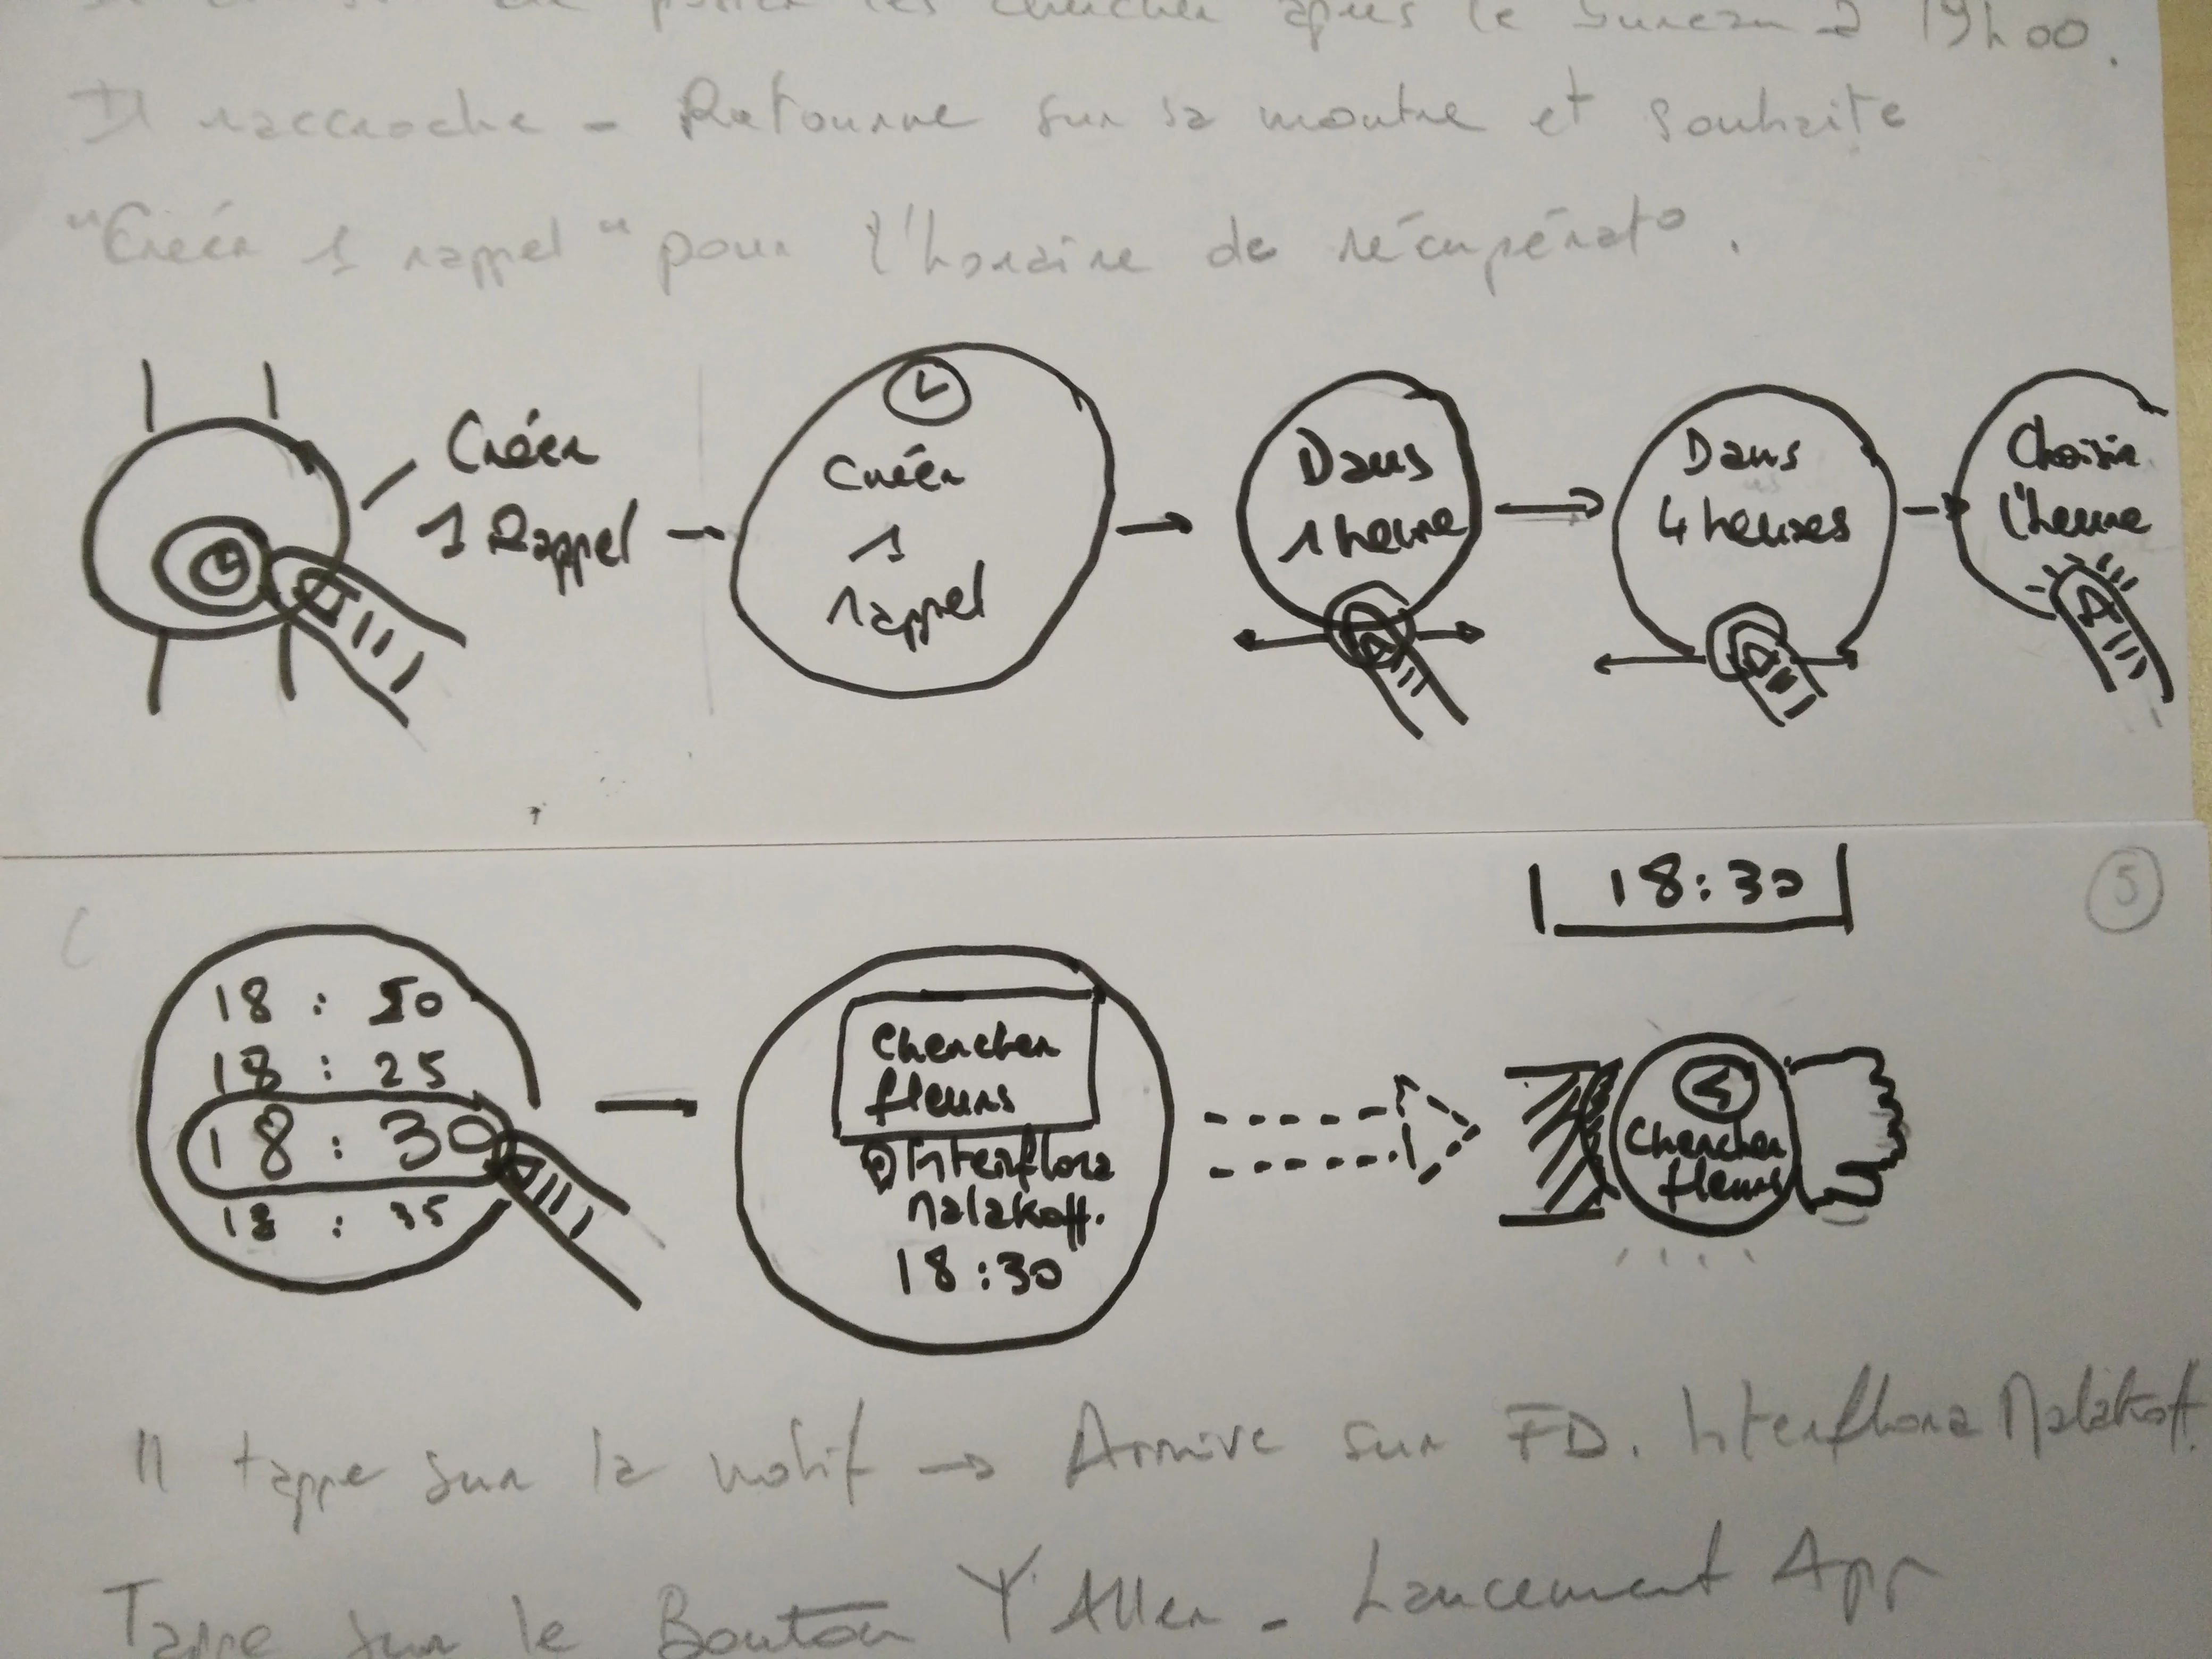 passer les chercher après le bureau à 19h00.
Il raccroche - Retourne sur sa montre et souhaite
"Créer 1 rappel" pour l'horaire de récupérat°.
Créer
1 Rappel
Créer
1
rappel
Dans
1 heure
Dans
4 heures
Choisir
l'heure
18:30
5
18 : 20
18 : 25
18 : 30
18 : 35
Chercher
fleurs
Interflora
Malakoff.
18:30
Chercher
fleurs
Il tappe sur la notif → Arrive sur FD. Interflora Malakoff.
Tappe sur le Bouton Y Aller - Lancement App